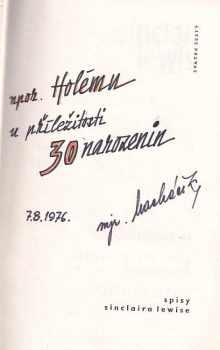 npor. Holému
u příležitosti
30 narozenin
7.8.1976. mjr. Macháček
spisy
sinclaira lewise